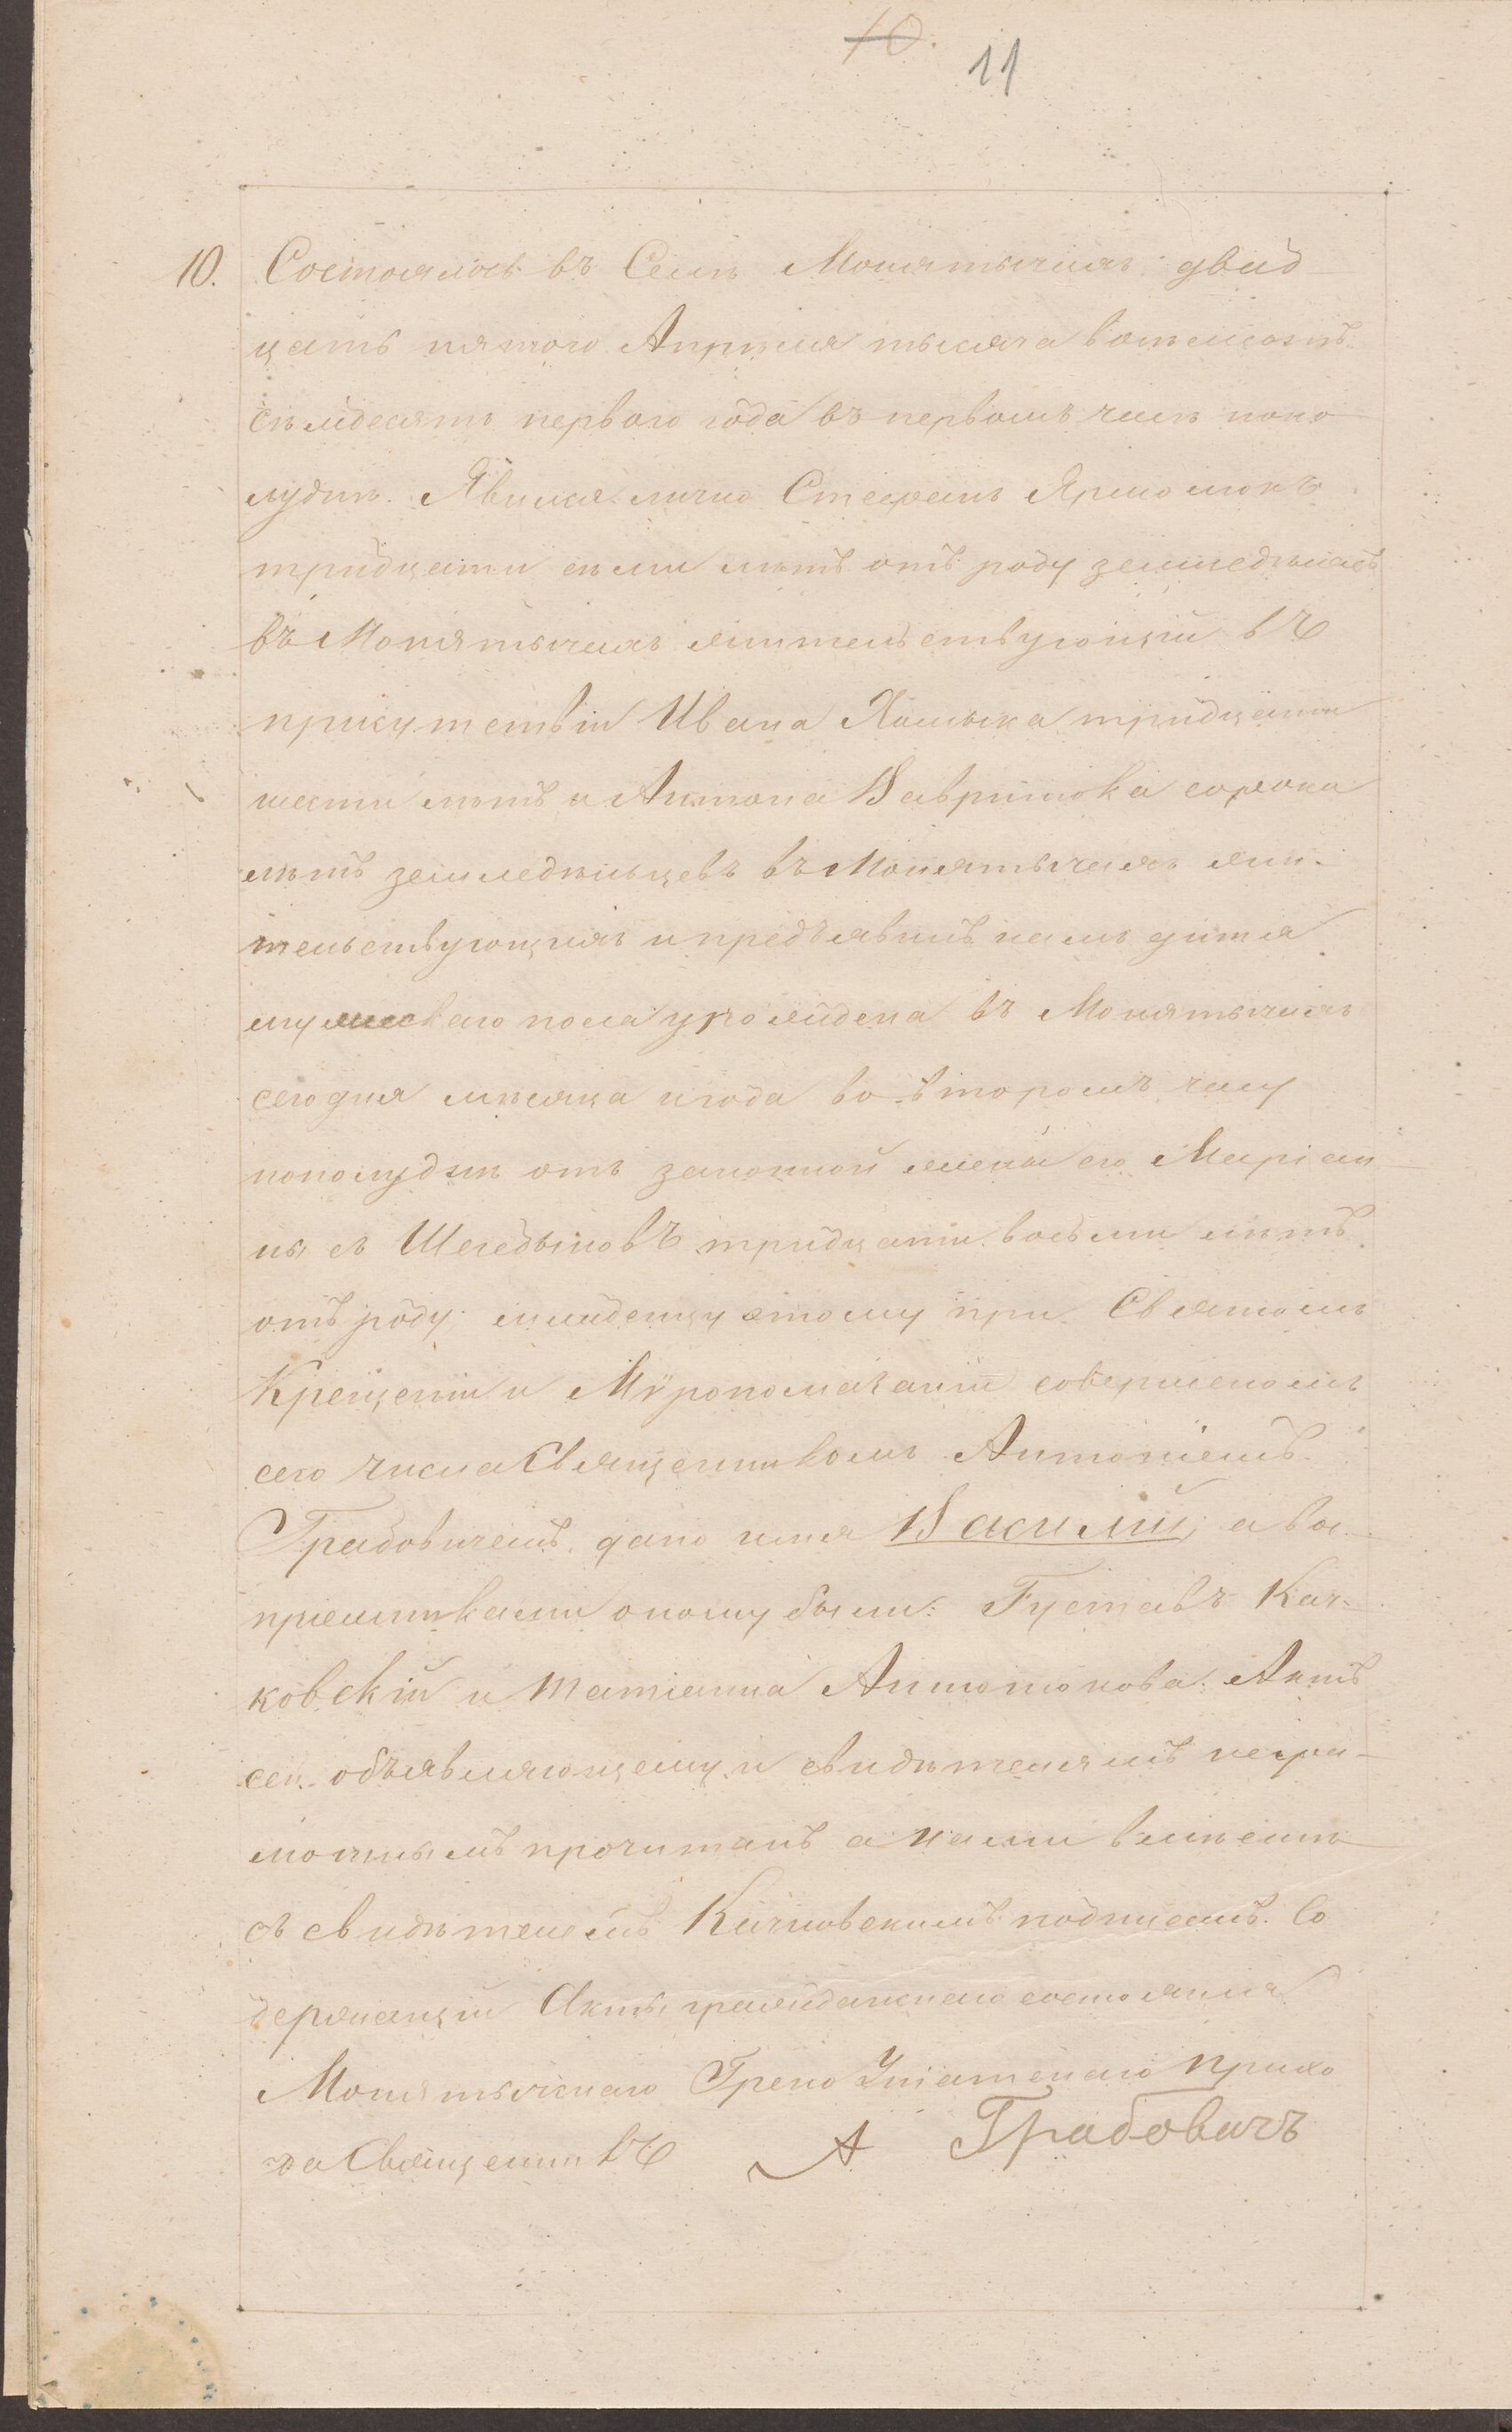 10.
11
10. Состоялось въ Селѣ Монятычахъ двад
цать пятого Апрѣля тысяча восемсотъ
семдесятъ первого года въ первомъ часѣ попо
лудни. Явился лично Стефанъ Ярмолюкъ
тридцати семи лѣтъ отъ роду земледѣлецъ
въ Монятычахъ жительствующій въ
присутствіи Ивана Хомыка тридцати
шести лѣтъ и Антона Вавринюка сорока
лѣтъ земледѣльцевъ въ Монятычахъ жи-
тельствующихъ и предъявилъ намъ дитя
мужескаго пола урожйдена въ Монятычахъ
сего дня мѣсяца и года во второмъ часу
пополудни отъ законной жены его Маріан
ны съ Шегедыновъ тридцати восьми лѣтъ
отъ роду младенцу этому при Святомъ
Крещеніи и Мѵропомазаніи совершеномъ
сего числа Священникомъ Антоніемъ
Грабовичемъ дано имя Василій, а вос
пріемниками оному были: Густавъ Кач-
ковскій и Татіанна Антонюкова. Актъ
сей объявляющему и свидѣтелямъ негра-
мотнымъ прочитанъ а нами вмѣстѣ
съ свидѣтелемъ Качковскимъ подписанъ. Со
держащій Акты гражданскаго состоянія
Монятычскаго Греко Уніатскаго Прихо
да Священникъ А Грабовичъ